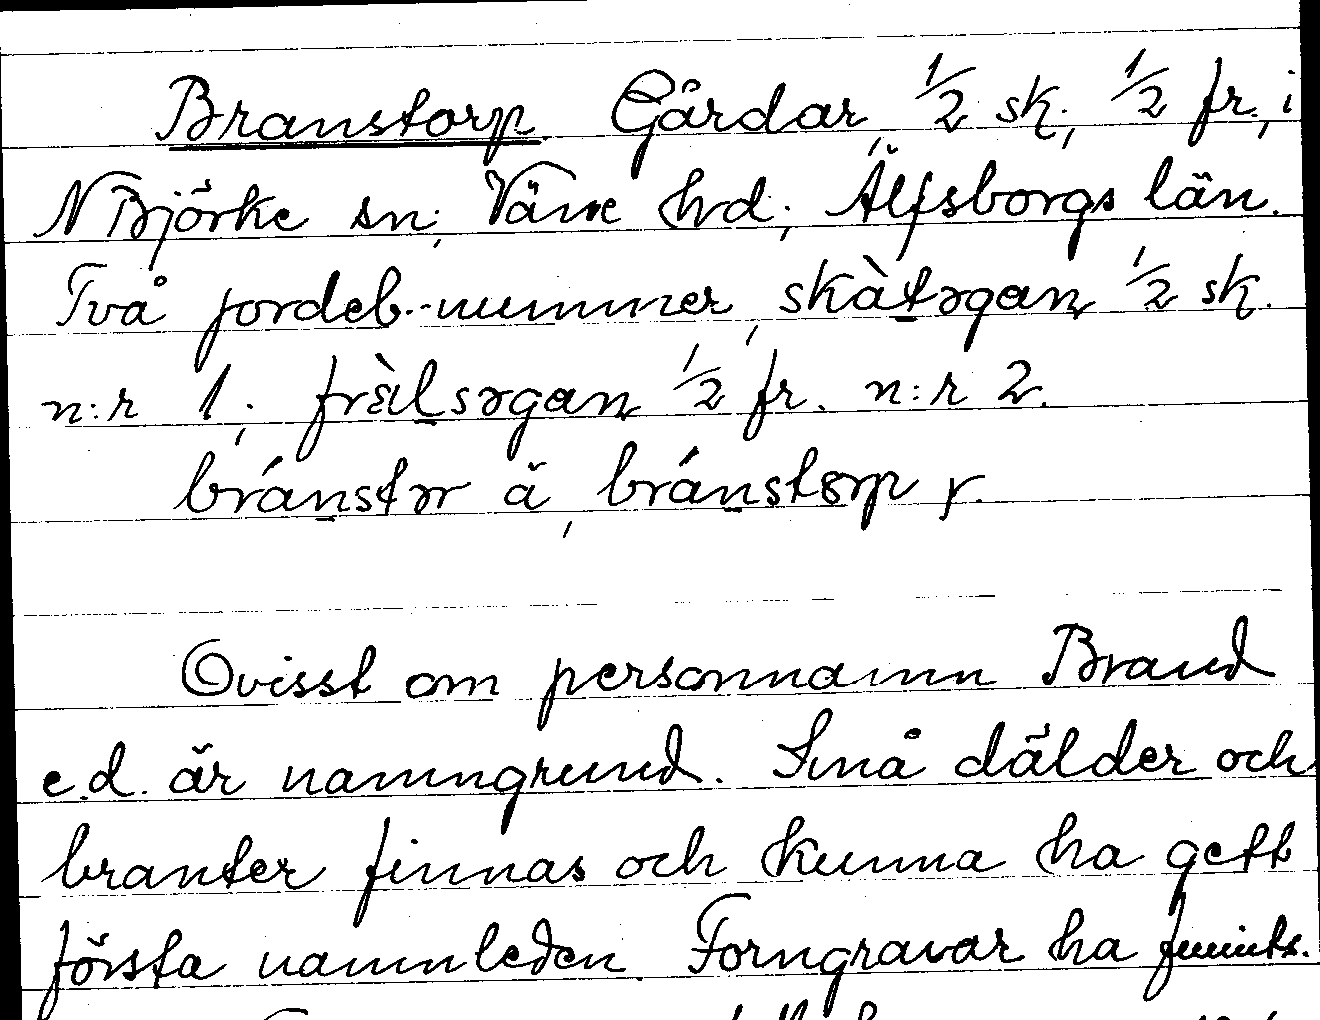 Branstorp. Gårdar, 1/2 sk; 1/2 fr., i
N Björke sn; Väne hrd; Älfsborgs län.
Två jordeb.-nummer, skàt̠ərgan 1/2 sk.
n:r 1; frὲl̠sərgan 1/2 fr. n:r 2.
brán̠stər ä, brán̠storp y.
Ovisst om personnamn Brand
e.d. är namngrund. Små dälder och
branter finnas och kunna ha gett
första namnleden. Forngravar ha funnits.